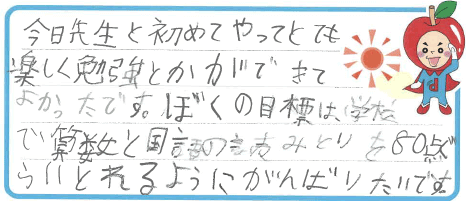 今日先生と初めてやってとても
楽しく勉強とかができて
よかったです。ぼくの目標は、学校
で算数と国語のよみとりを80点ぐ
らいとれるようにがんばりたいです。
d